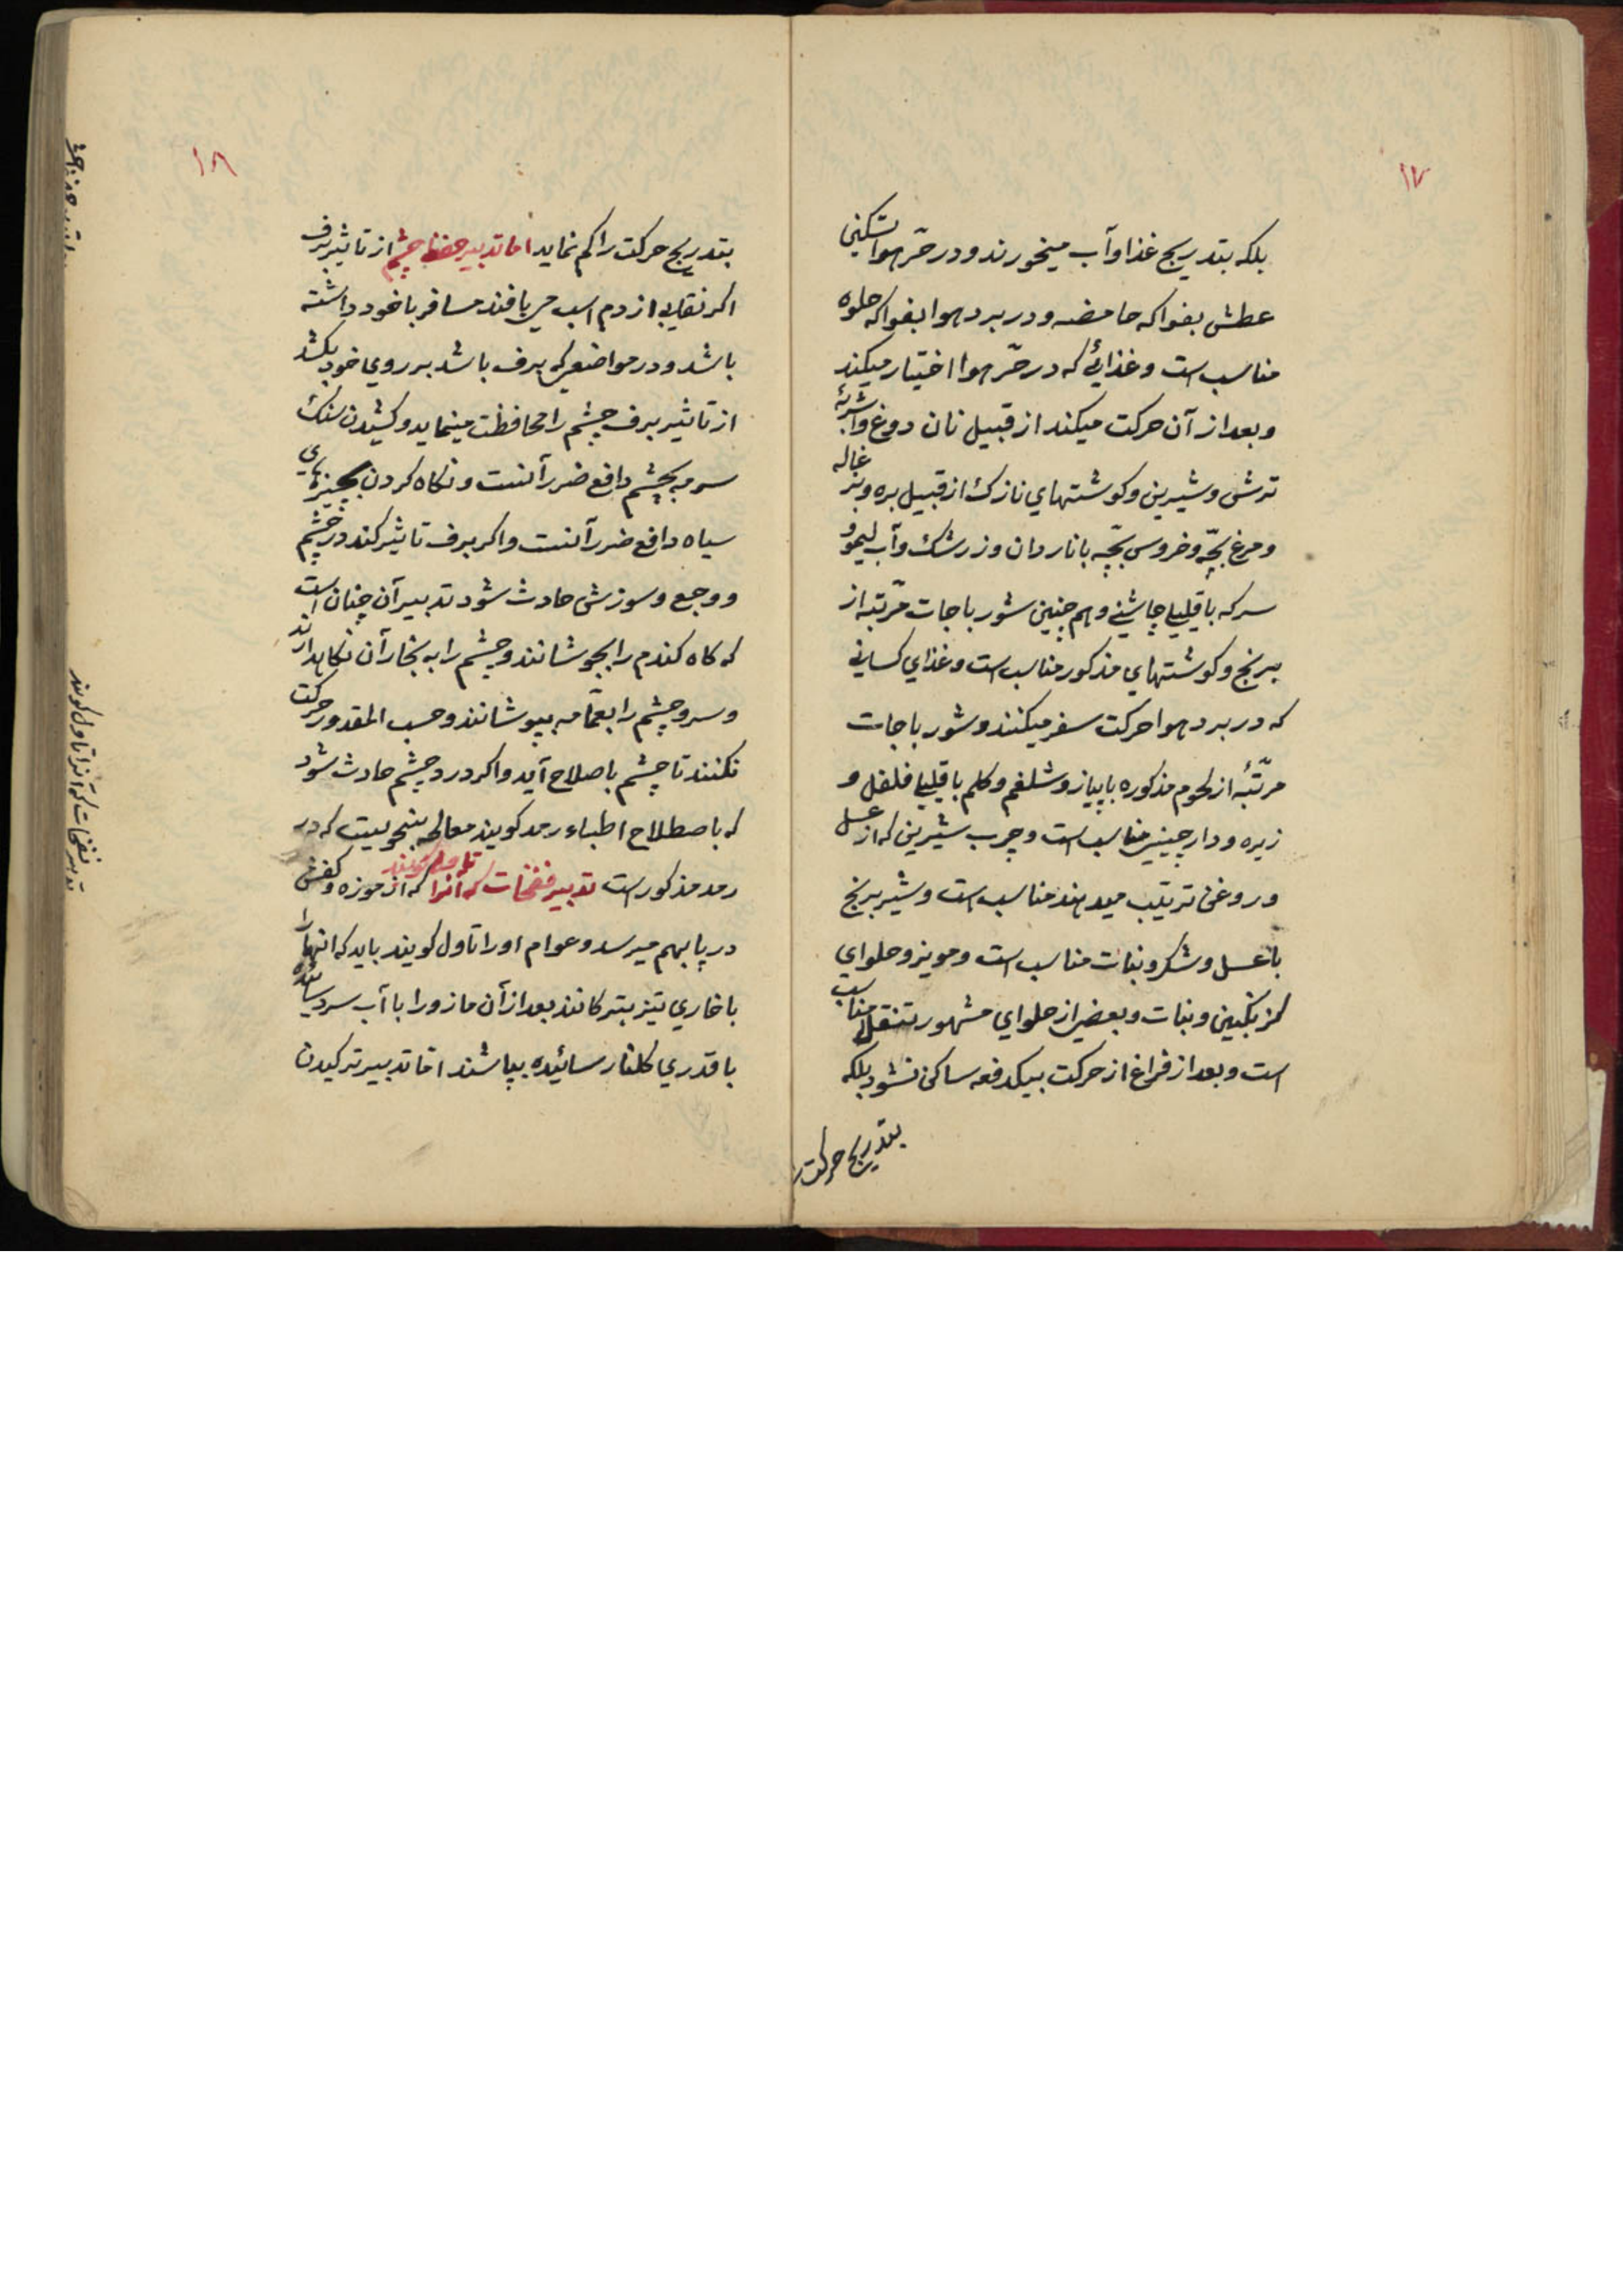 ۱۷
بلکه بتدریج غذا و آب میخورند و در حرّ هوا تسکین
عطش بفواکه حامضه و در برد هوا بفواکه حلوه
مناسب است و غذائی که در حرّ هوا اختیار میکند
و بعد از آن حرکت میکند از قبیل نان دوغ و اشربهٔ
ترش و شیرین و کوشتهای نازک از قبیل بره و بزغاله
و مرغ بچّه و خروس بچّه با ناردان و زرشک و آب لیمو و
سرکه با قلیلی چاشنی و هم چنین شورباجات مرّتبه از
برنج و کوشتهای مذکور مناسب است و غذای کسانی
که در برد هوا حرکت سفر میکنند و شورباجات
مرّتبهٔ از لحوم مذکوره با پیاز و شلغم و کلم با قلیلی فلفل و
زیره و دارچینی مناسب است و چرب شیرین که از عسل
و روغن ترتیب میدهند مناسب است و شیر برنج
با عسل و شکر و نبات مناسب است و مویز و حلوای
کزنکبین و نبات و بعضی از حلوای مشهور تنقل مناسب
است و بعد از فراغ از حرکت بیکدفعه ساکن نشود بلکه
بتدریج حرکت
۱۸
بتدریج حرکت را کم نماید اما تدبیر حفظ چشم از تاثیر برف
اکر نقابی از دم اسب می بافند مسافر با خود داشته
باشد و در مواضعی که برف باشد بر روی خود بکشد
از تاثیر برف چشم را محافظت مینماید و کشیدن سنک
سرمه بچشم دافع ضرر آنست و نکاه کردن بچیزهای
سیاه دافع ضرر آنست و اکر برف تاثیر کند در چشم
و وجع و سوزش حادث شود تدبیر آن چنان است
که کاه کندم را بجوشانند و چشم را به بخار آن نکاهدارند
و سر و چشم را بعمّامه بپوشانند و حسب المقدور حرکت
نکنند تا چشم باصلاح آید و اکر درد چشم حادث شود
که باصطلاح اطباء رمد کویند معالجه بنحویست که در
رمد مذکور است تدبیر نفخات که آنرا تاول کویند که از موزه و کفش
در پا بهم میرسد و عوام او را تاول کویند باید که انها را
با خاری تیز بترکانند بعد از آن مازو را با آب سرد سائیده
با قدری کلنار سائیده بپاشند اما تدبیر ترکیدن
تدبیر نفخات که آنرا تاول کویند